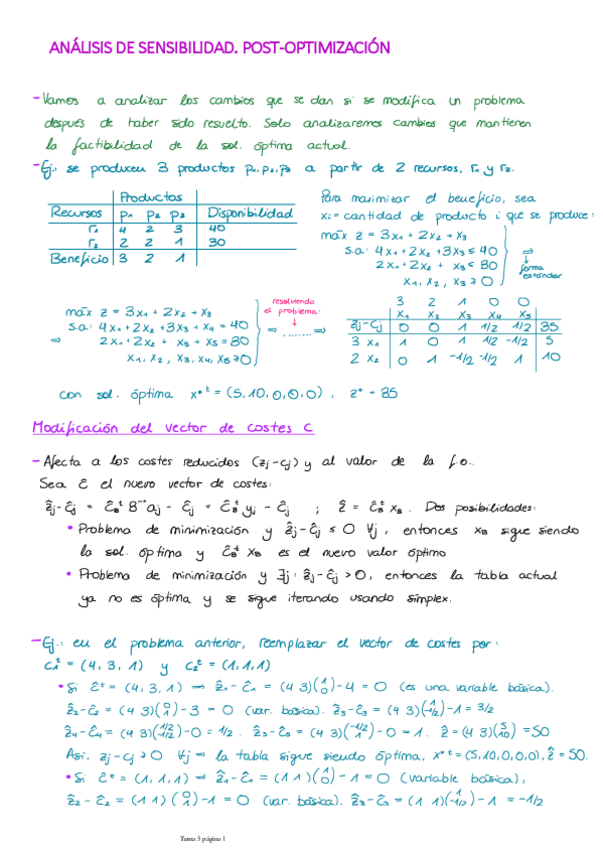 ANÁLISIS DE SENSIBILIDAD. POST-OPTIMIZACIÓN
- Vamos a analizar los cambios que se dan si se modifica un problema
después de haber sido resuelto. Solo analizaremos cambios que mantienen
la factibilidad de la sol. óptima actual.
- Ej.: se producen 3 productos p₁, p₂, p₃ a partir de 2 recursos, r₁ y r₂.
Productos
Recursos p₁ p₂ p₃ Disponibilidad
r₁ 4 2 3 40
r₂ 2 2 1 30
Beneficio 3 2 1
Para maximizar el beneficio, sea
xᵢ = cantidad de producto i que se produce:
máx z = 3x₁ + 2x₂ + x₃
s.a: 4x₁ + 2x₂ + 3x₃ ≤ 40
2x₁ + 2x₂ + x₃ ≤ 80
x₁, x₂, x₃ ≥ 0
⇒
forma
estándar
máx z = 3x₁ + 2x₂ + x₃
s.a: 4x₁ + 2x₂ + 3x₃ + x₄ = 40
⇒ 2x₁ + 2x₂ + x₃ + x₅ = 80
x₁, x₂, x₃, x₄, x₅ ≥ 0
resolviendo
el problema:
↓
⇒ ........ ⇒
3 2 1 0 0
x₁ x₂ x₃ x₄ x₅
zj - cj 0 0 1 1/2 1/2 35
3 x₁ 1 0 1 1/2 -1/2 5
2 x₂ 0 1 -1/2 -1/2 1 10
con sol. óptima x*ᵗ = (5, 10, 0, 0, 0) , z* = 35
Modificación del vector de costes C
- Afecta a los costes reducidos (zj - cj) y al valor de la f.o..
Sea ĉ el nuevo vector de costes:
ẑj - ĉj = ĉBᵗ B⁻¹ aj - ĉj = ĉBᵗ yj - ĉj ; ẑ = ĉBᵗ xB . Dos posibilidades:
• Problema de minimización y ẑj - ĉj ≤ 0 ∀j, entonces xB sigue siendo
la sol. óptima y ĉBᵗ xB es el nuevo valor óptimo
• Problema de minimización y ∃j: ẑj - ĉj > 0, entonces la tabla actual
ya no es óptima y se sigue iterando usando simplex.
- Ej.: en el problema anterior, reemplazar el vector de costes por:
c₁ᵗ = (4, 3, 1) y c₂ᵗ = (1, 1, 1)
• Si ĉᵗ = (4, 3, 1) → ẑ₁ - ĉ₁ = (4 3)(1 0) - 4 = 0 (es una variable básica).
ẑ₂ - ĉ₂ = (4 3)(0 1) - 3 = 0 (var. básica). ẑ₃ - ĉ₃ = (4 3)(1 -1/2) - 1 = 3/2
ẑ₄ - ĉ₄ = (4 3)(1/2 -1/2) - 0 = 1/2 . ẑ₅ - ĉ₅ = (4 3)(-1/2 1) - 0 = 1. ẑ = (4 3)(5 10) = 50
Así, zj - cj ≥ 0 ∀j → la tabla sigue siendo óptima, x*ᵗ = (5, 10, 0, 0, 0), ẑ = 50.
• Si ĉᵗ = (1, 1, 1) → ẑ₁ - ĉ₁ = (1 1)(1 0) - 1 = 0 (variable básica),
ẑ₂ - ĉ₂ = (1 1)(0 1) - 1 = 0 (var. básica). ẑ₃ - ĉ₃ = (1 1)(1 -1/2) - 1 = -1/2
Tema 5 página 1